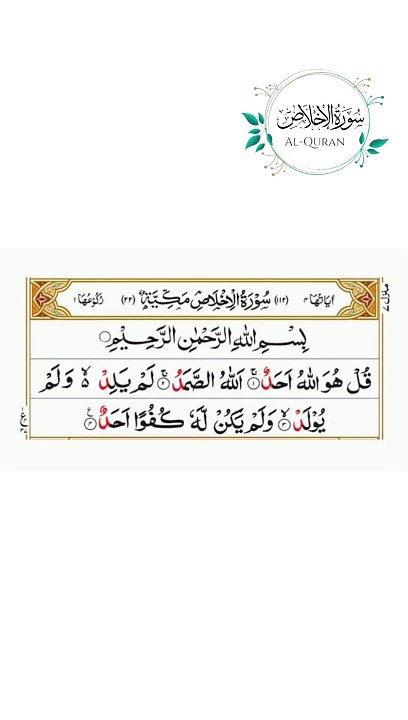 سُورَةُ الْاِخْلَاصِ
AL-QURAN
اٰيَاتُهَا ٤ (١١٢) سُوْرَةُ الْاِخْلَاصِ مَكِّيَّةٌ (٢٢) رُكُوْعُهَا ١
بِسْمِ اللّٰهِ الرَّحْمٰنِ الرَّحِيْمِ
قُلْ هُوَ اللّٰهُ اَحَدٌ ۚ﴿١﴾ اَللّٰهُ الصَّمَدُ ۚ﴿٢﴾ لَمْ يَلِدْ ۙ۬ وَلَمْ
يُوْلَدْ ۙ﴿٣﴾ وَلَمْ يَكُنْ لَّهٗ كُفُوًا اَحَدٌ ﴿٤﴾ ع